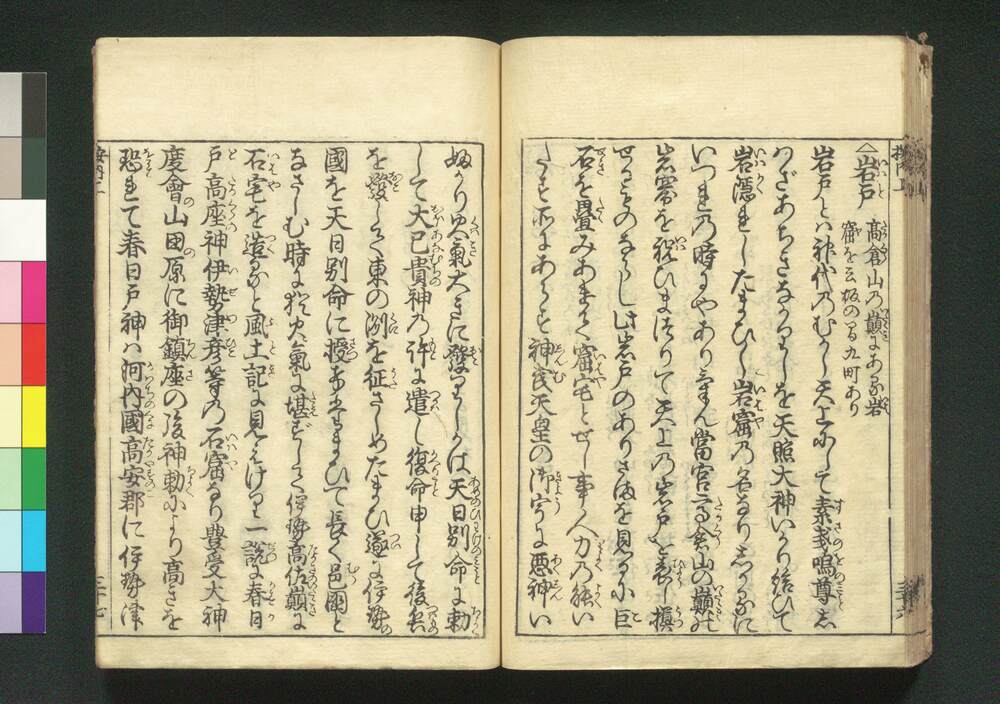 岩戸 高倉山乃巓にある岩
窟を云坂のる九町あり
岩戸とハ神代乃むかし天上にして素戔嗚尊し
わざあらきさなかりしを天照大神いかり給ひて
岩隠れしたまひし岩窟乃名なりしかるに
いつれ乃時にやありけん當宮高倉山の巓の
岩窟を祝ひまつりて天上乃岩戸と表し摸
せるものならし此岩戸のありさまを見るに巨
石を畳みあけて窟宅とせし事人力乃能い
たす所にあらす神武天皇の御宇に悪神い
ぬかり火氣大きに發りしかは天日別命に勅
して大己貴神乃許に遣し復命申して後兵
を發して東の洌を征さしめたまひ遂に伊勢
國を天日別命に授けたまひて長く邑國と
なさしむ時に火氣に堪ずして伊勢高佐巓に
石宅を造ると風土記に見えけり一説に春日
戸高座神伊勢津彦等乃石窟なり豊受大神
度會山田原に御鎮座の後神勅により高きを
恐れて春日戸神ハ河内國高安郡に伊勢津